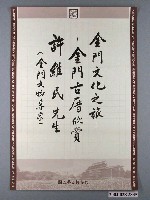 金門文化之旅
：金門古厝欣賞
許維民先生
（金門文物專家）